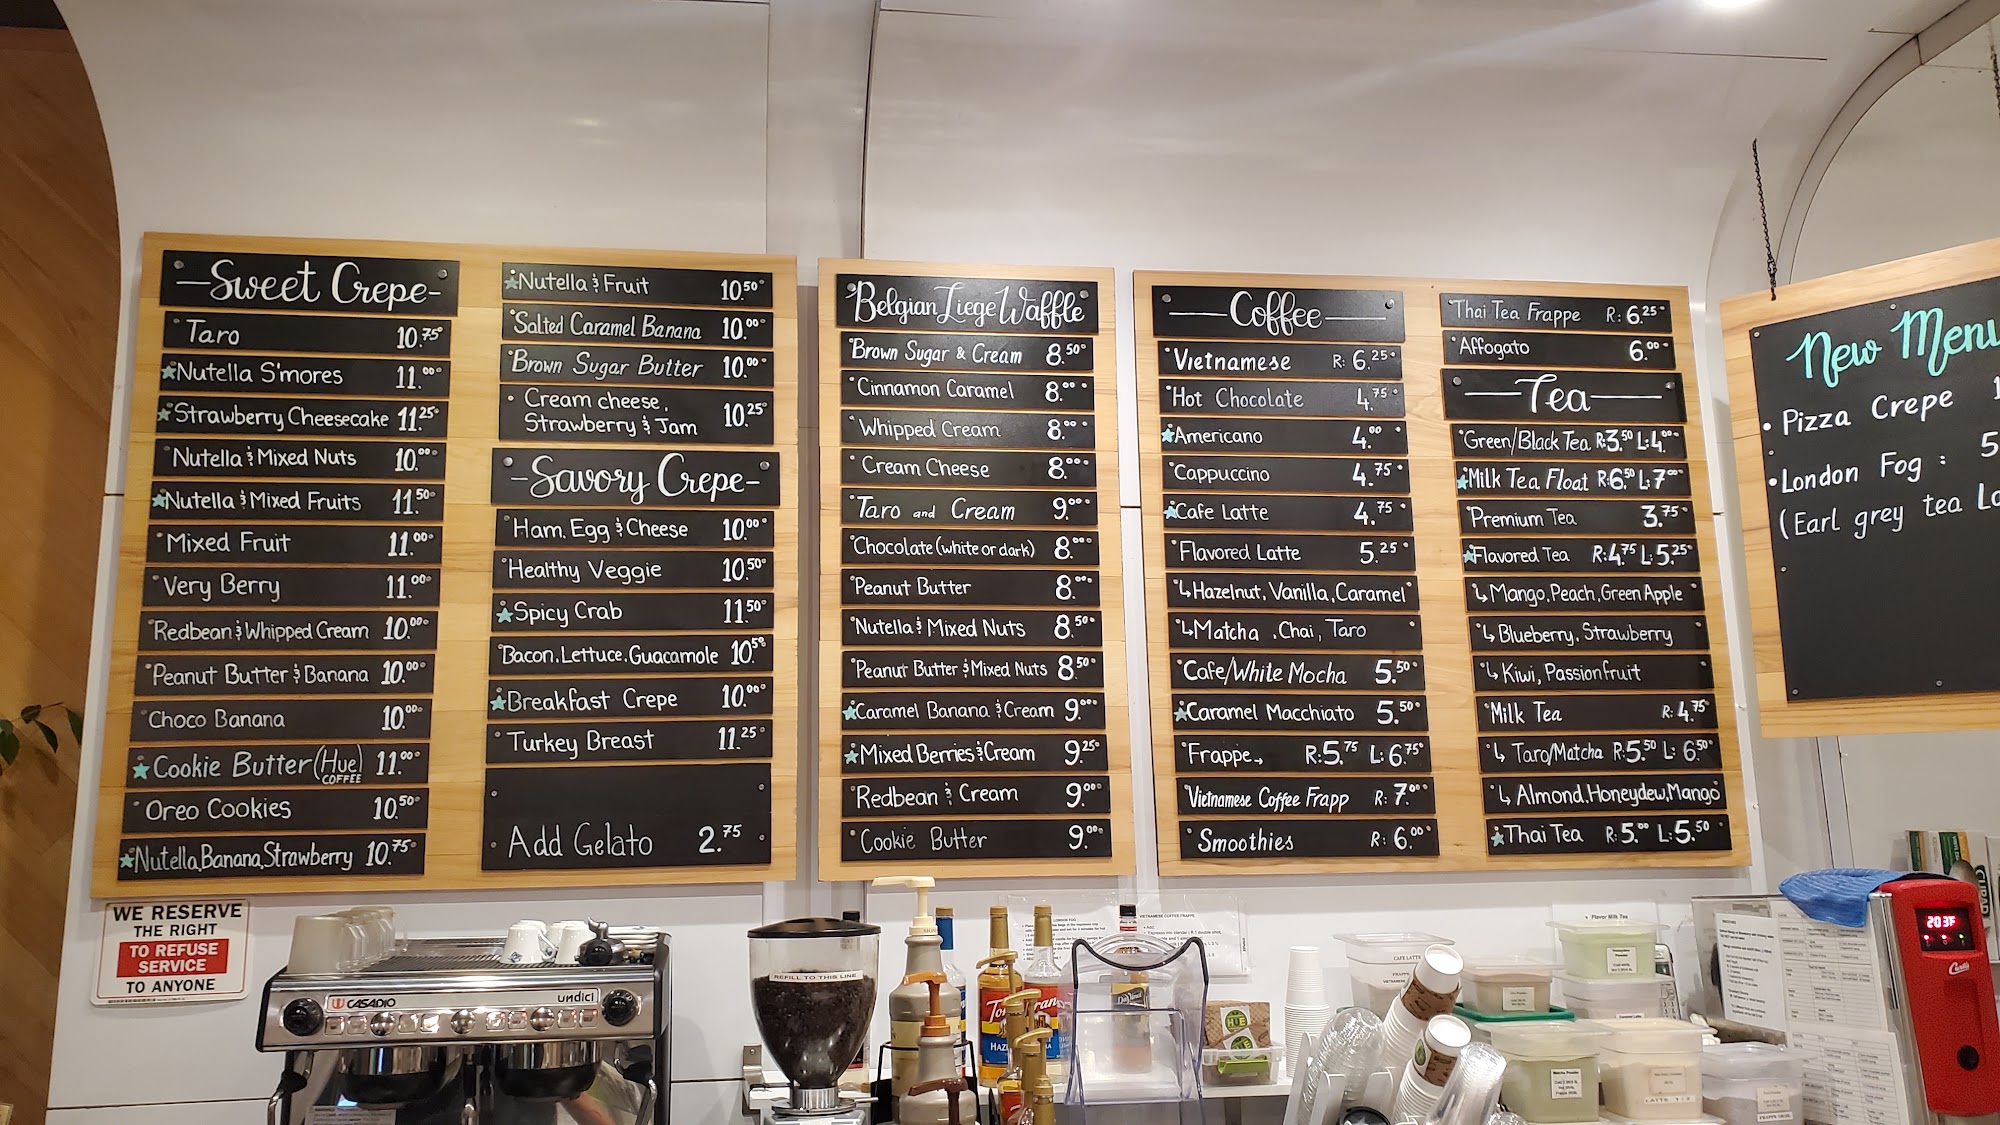 Sweet Crepe
Taro 10.75
Nutella S'mores 11.00
Strawberry Cheesecake 11.25
Nutella & Mixed Nuts 10.00
Nutella & Mixed Fruits 11.50
Mixed Fruit 11.00
Very Berry 11.00
Redbean & Whipped Cream 10.00
Peanut Butter & Banana 10.00
Choco Banana 10.00
Cookie Butter (Hue COFFEE) 11.00
Oreo Cookies 10.50
Nutella, Banana, Strawberry 10.75
Nutella & Fruit 10.50
Salted Caramel Banana 10.00
Brown Sugar Butter 10.00
Cream cheese,
Strawberry & Jam 10.25
Savory Crepe
Ham, Egg & Cheese 10.00
Healthy Veggie 10.50
Spicy Crab 11.50
Bacon, Lettuce, Guacamole 10.50
Breakfast Crepe 10.00
Turkey Breast 11.25
Add Gelato 2.75
Belgian Liege Waffle
Brown Sugar & Cream 8.50
Cinnamon Caramel 8.00
Whipped Cream 8.00
Cream Cheese 8.00
Taro and Cream 9.00
Chocolate (white or dark) 8.00
Peanut Butter 8.00
Nutella & Mixed Nuts 8.50
Peanut Butter & Mixed Nuts 8.50
Caramel Banana & Cream 9.00
Mixed Berries & Cream 9.25
Redbean & Cream 9.00
Cookie Butter 9.00
Coffee
Vietnamese R: 6.25
Hot Chocolate 4.75
Americano 4.00
Cappuccino 4.75
Cafe Latte 4.75
Flavored Latte 5.25
↳ Hazelnut, Vanilla, Caramel
↳ Matcha, Chai, Taro
Cafe/White Mocha 5.50
Caramel Macchiato 5.50
Frappe → R: 5.75 L: 6.75
Vietnamese Coffee Frapp R: 7.00
Smoothies R: 6.00
Thai Tea Frappe R: 6.25
Affogato 6.00
Tea
Green/Black Tea R: 3.50 L: 4.00
Milk Tea Float R: 6.50 L: 7.00
Premium Tea 3.75
Flavored Tea R: 4.75 L: 5.25
↳ Mango, Peach, Green Apple
↳ Blueberry, Strawberry
↳ Kiwi, Passionfruit
Milk Tea R: 4.75
↳ Taro/Matcha R: 5.50 L: 6.50
↳ Almond, Honeydew, Mango
Thai Tea R: 5.00 L: 5.50
New Menu
• Pizza Crepe
• London Fog :
(Earl grey tea
WE RESERVE
THE RIGHT
TO REFUSE
SERVICE
TO ANYONE
CASADIO
undici
REFILL TO THIS LINE
LONDON FOG
VIETNAMESE COFFEE FRAPPE
Flavor Milk Tea
CAFE LATTE
HUE
203°F
Curtis